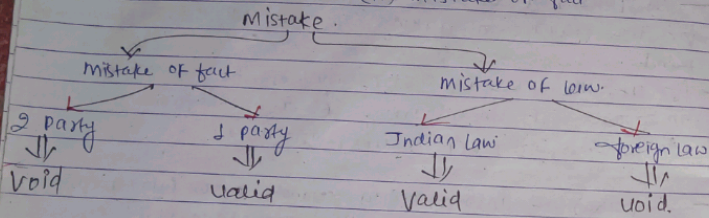 Mistake.
Mistake of fact
Mistake of law.
2 party
1 party
Indian law
foreign law
void
valid
valid
void.